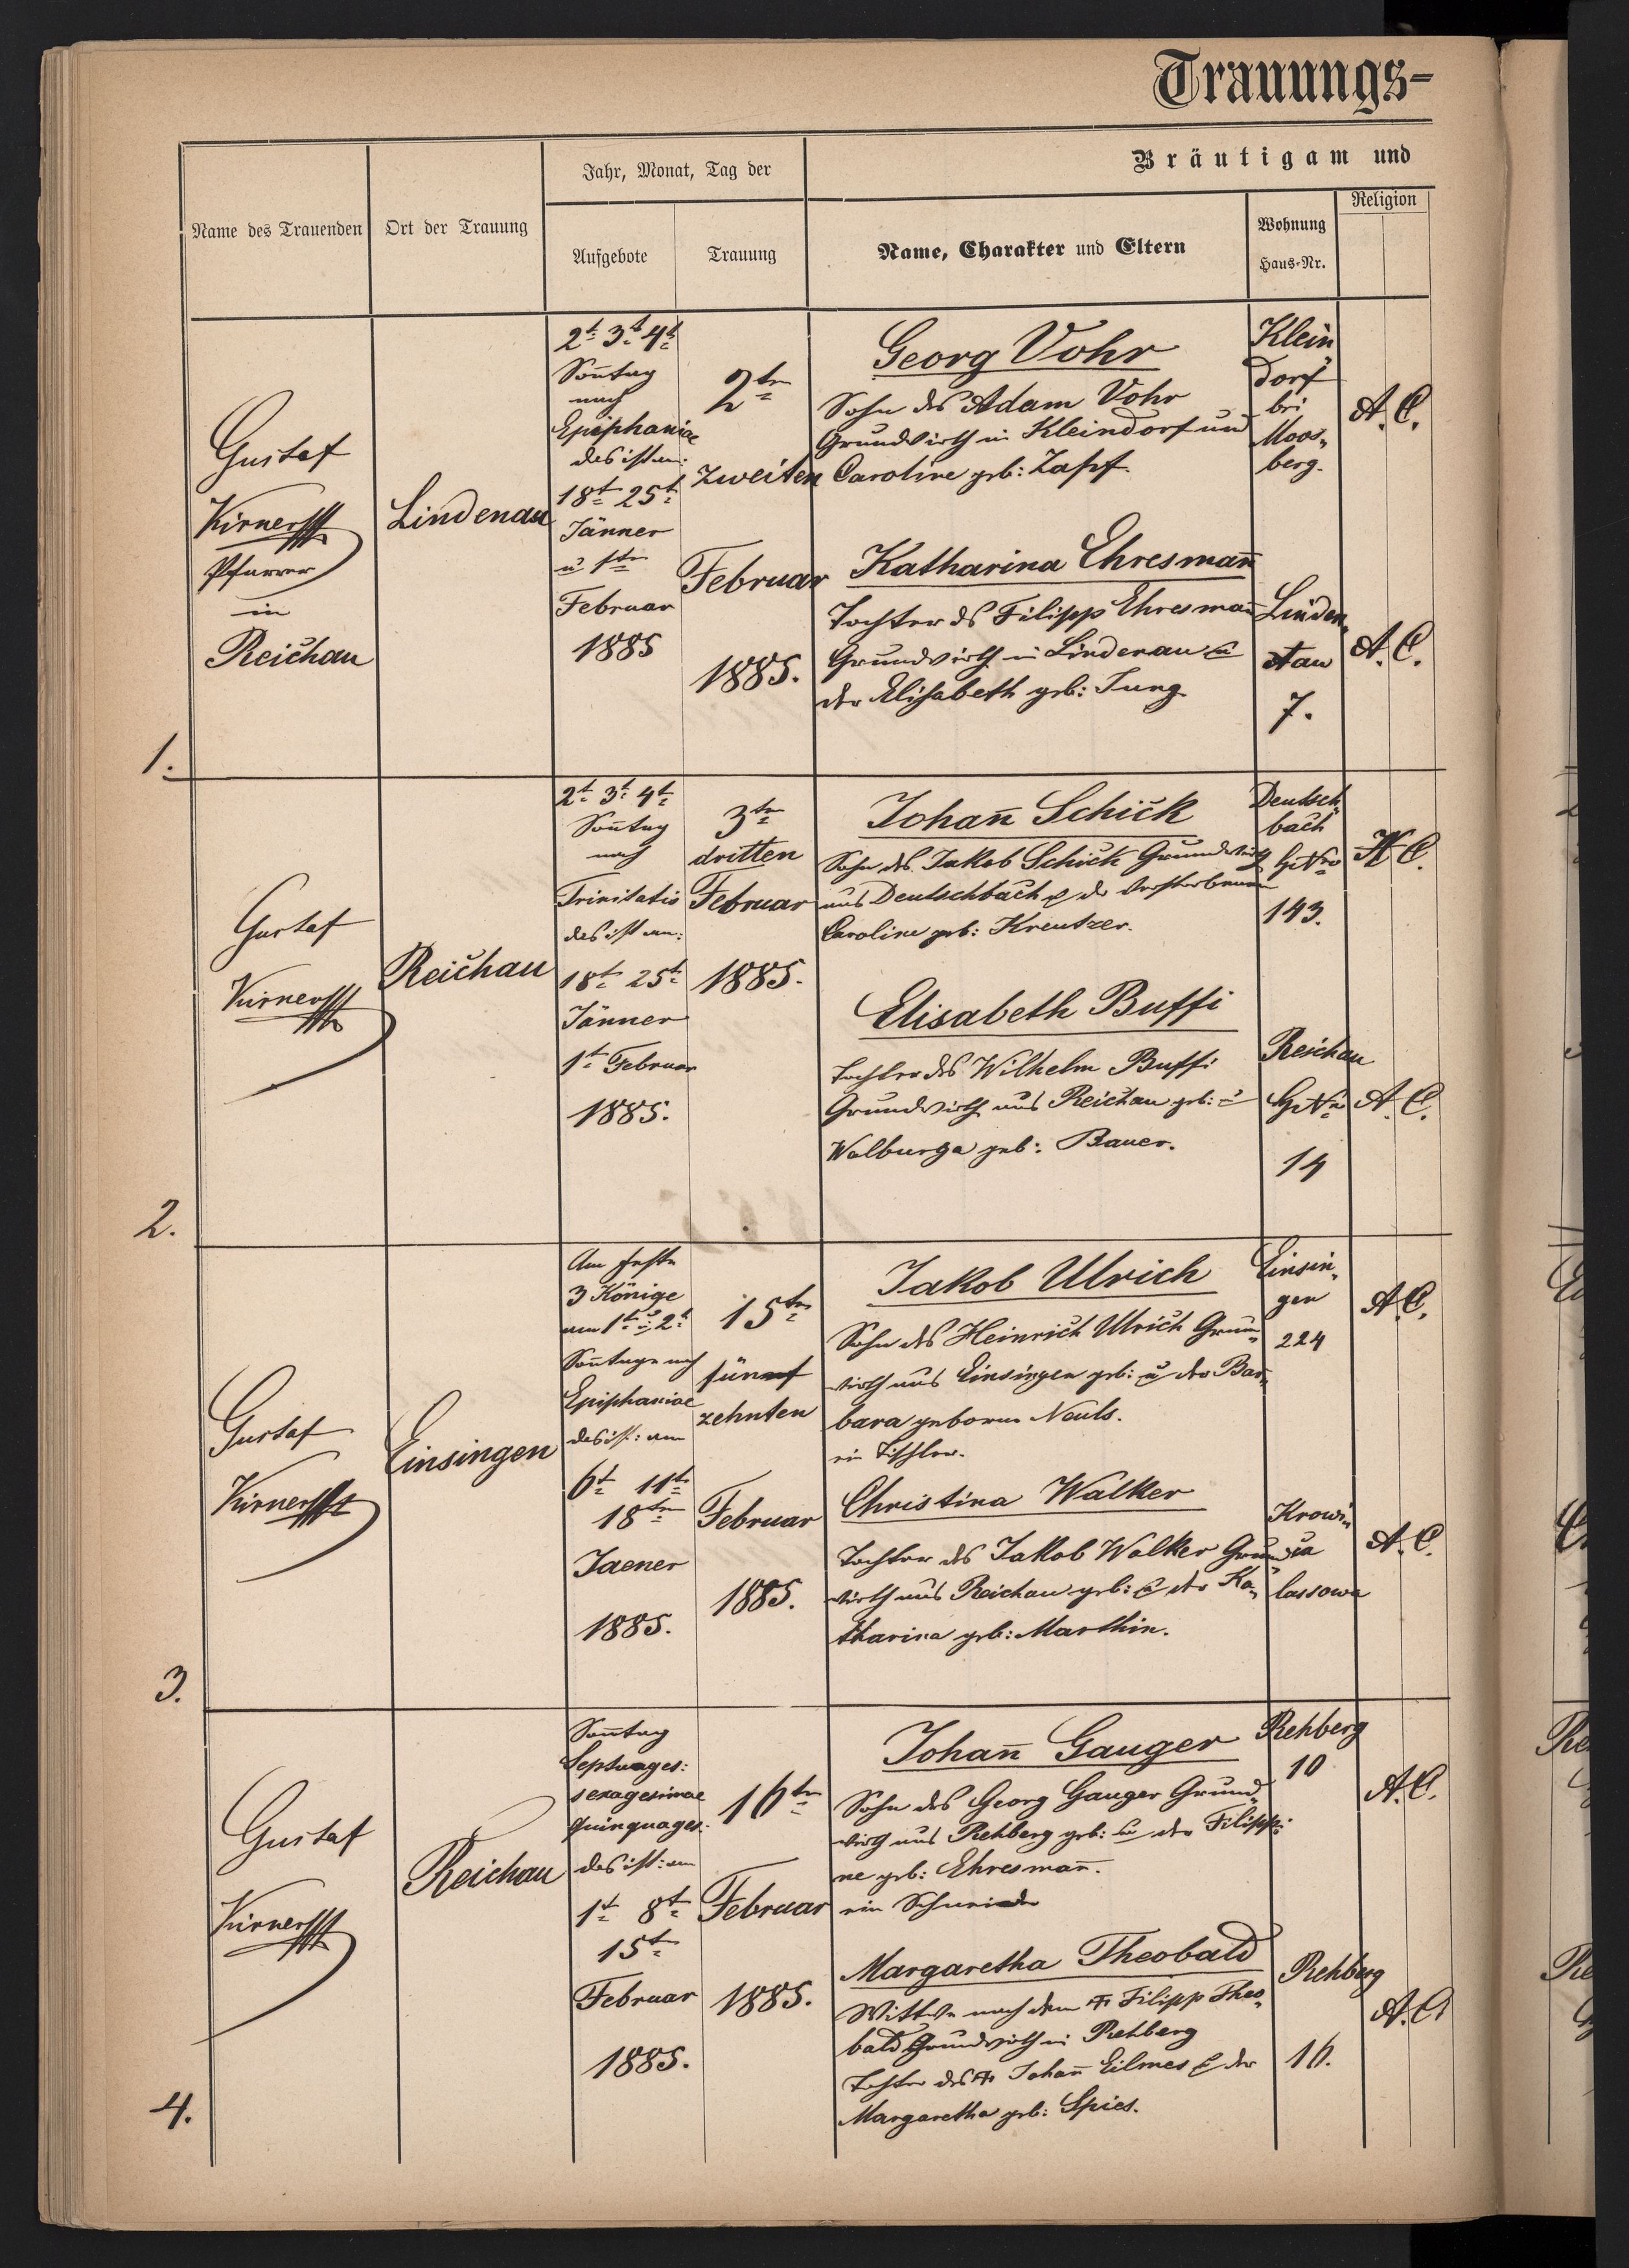 Trauungs-
Name des Trauenden
Ort der Trauung
Jahr, Monat, Tag der
Aufgebote
Trauung
Bräutigam und
Name, Charakter und Eltern
Wohnung
Haus-Nr.
Religion
1.
Gustaf
Kirner
Pfarrer
in
Reichau
Lindenau
2t 3t 4t
Son̄tag
nach
Epiphaniae
das ist am:
18t 25t
Jänner
u 1ten
Februar
1885
2ten
zweiten
Februar
1885.
Georg Vohr
Sohn des Adam Vohr
Grundwirth in Kleindorf und
Caroline geb: Zapf.
Klein
dorf
bei
Moos„
berg.
A. C.
Katharina Ehresman̄
Tochter ds Filipp Ehresman̄
Grundwirth in Lindenau u
der Elisabeth geb: Jung
Linden„
au
7.
A. C.
2.
Gustaf
Kirner
Reichau
2t 3t 4t
Son̄tag
nach
Trinitatis
das ist am:
18t 25t
Jänner
1t Februar
1885.
3ten
dritten
Februar
1885.
Johan̄ Schick
Sohn des Jakob Schick Grundwirth
aus Deutschbach u der verstorbenen
Caroline geb: Kreutzer.
Deutsch„
bach
143.
H. C.
Elisabeth Buffi
Tochter des Wilhelm Buffi
Grundwirth aus Reichau geb: u
Walburga geb: Bauer.
Reichau
14
A. C.
3.
Gustaf
Kirner
Einsingen
Am Feste
3 Könige
am 1t u 2t
Son̄tage nach
Epiphaniae
das ist: am
6t 11t
18ten
Jaener
1885.
15ten
fünf
zehnten
Februar
1885.
Jakob Ulrich
Sohn des Heinrich Ulrich Grund„
wirth aus Einsingen geb: u der Bar„
bara geborene Nauls.
ein Tischler.
Einsin„
gen
224
A. C.
Christina Walker
Tochter des Jakob Walker Grund
wirth aus Reichau geb: u der Ka„
tharina geb: Marthin.
Krowi„
ca
lassowa
A. C.
4.
Gustaf
Kirner
Reichau
Son̄tag
Septuages:
sexagesimae
Quinquages:
das ist: am
1t 8t
15t
Februar
1885.
16ten
Februar
1885.
Johan̄ Gauger
Sohn des Georg Gauger Grund„
wirth aus Rehberg geb: u der Filippi
ne geb: Ehresman̄.
ein Schneider
Rehberg
10
A. C.
Margaretha Theobald
Wittwe nach dem Filipp Theo„
bald Grundwirth in Rehberg
Tochter des Johan̄ Eilmes u der
Margaretha geb: Spies.
Rehberg
16.
A. C